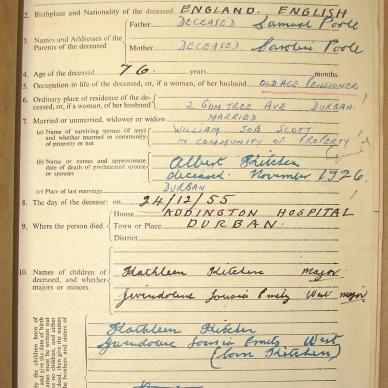 2. Birthplace and Nationality of the deceased ENGLAND. ENGLISH
Father DECEASED Samuel Poole
3. Names and Addresses of the
Parents of the deceased
Mother DECEASED Caroline Poole
4. Age of the deceased 76. years months
5. Occupation in life of the deceased, or, if a woman, of her husband OLD AGE PENSIONER
6. Ordinary place of residence of the de-
ceased, or, if a woman, of her husband 2 GUM TREE AVE DURBAN.
7. Married or unmarried, widower or widow MARRIED
(a) Name of surviving spouse (if any)
and whether married in community
of property or not
WILLIAM JOB SCOTT
IN COMMUNITY OF PROPERTY
(b) Names and approximate
date of death of predeceased spouse
or spouses
Albert Kitchen
deceased. November 1926.
(c) Place of last marriage DURBAN
8. The day of the decease: on 24/12/55
House ADDINGTON HOSPITAL
9. Where the person died Town or Place DURBAN.
District
10. Names of children of
deceased, and whether
majors or minors
Kathleen Kitchen major.
Gwendolene Louisa Emily West major
Kathleen Kitchen
Gwendolene Louisa Emily West
(born Kitchen)